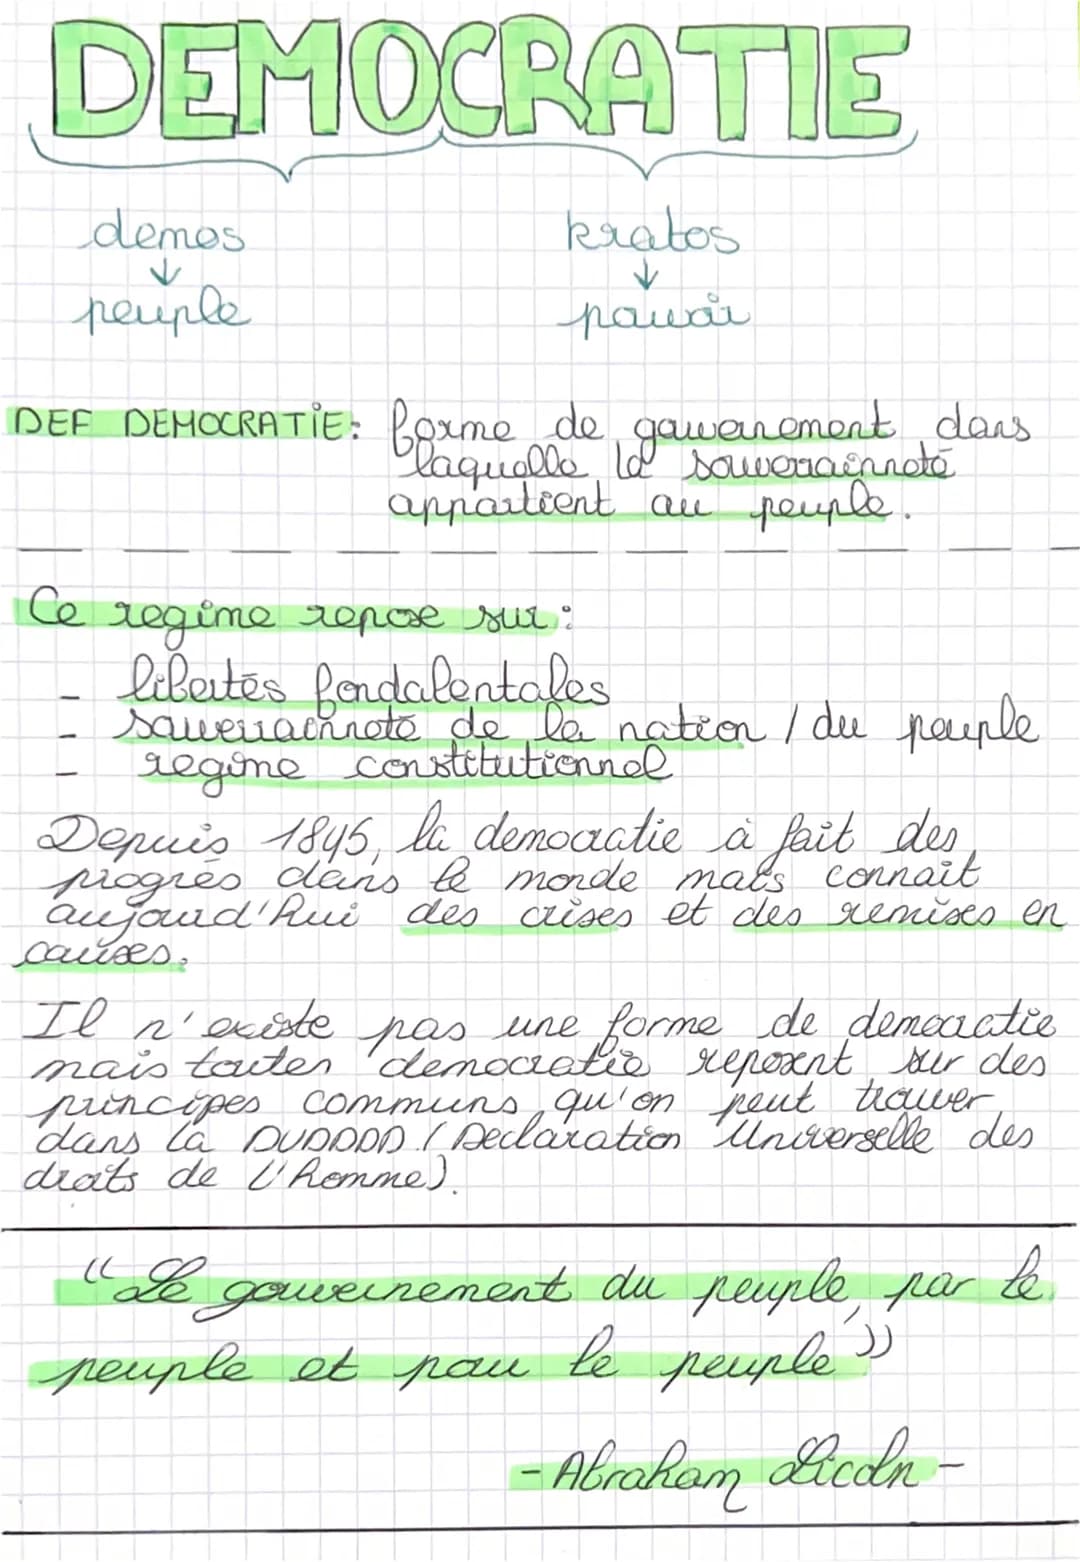 DEMOCRATIE
demos kratos
↓ ↓
peuple pouvoir
DEF DEMOCRATIE: forme de gouvernement dans
laquelle la souverrainneté
appartient au peuple.
Ce regime repose sur :
- libertés fondalentales
- souverrainneté de la nation / du peuple
- regime constitutionnel
Depuis 1845, la democratie à fait des
progrès dans le monde mais connait
aujourd'hui des crises et des remises en
causes.
Il n'existe pas une forme de democratie
mais toutes democratie reposent sur des
principes communs qu'on peut trouver
dans la DUDDDD (Declaration Universelle des
droits de l'homme).
"Le gouvernement du peuple, par le
peuple et pour le peuple"
- Abraham Licoln -